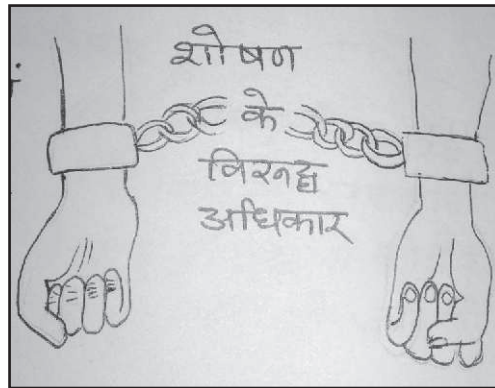 शोषण
के
विरुद्ध
अधिकार